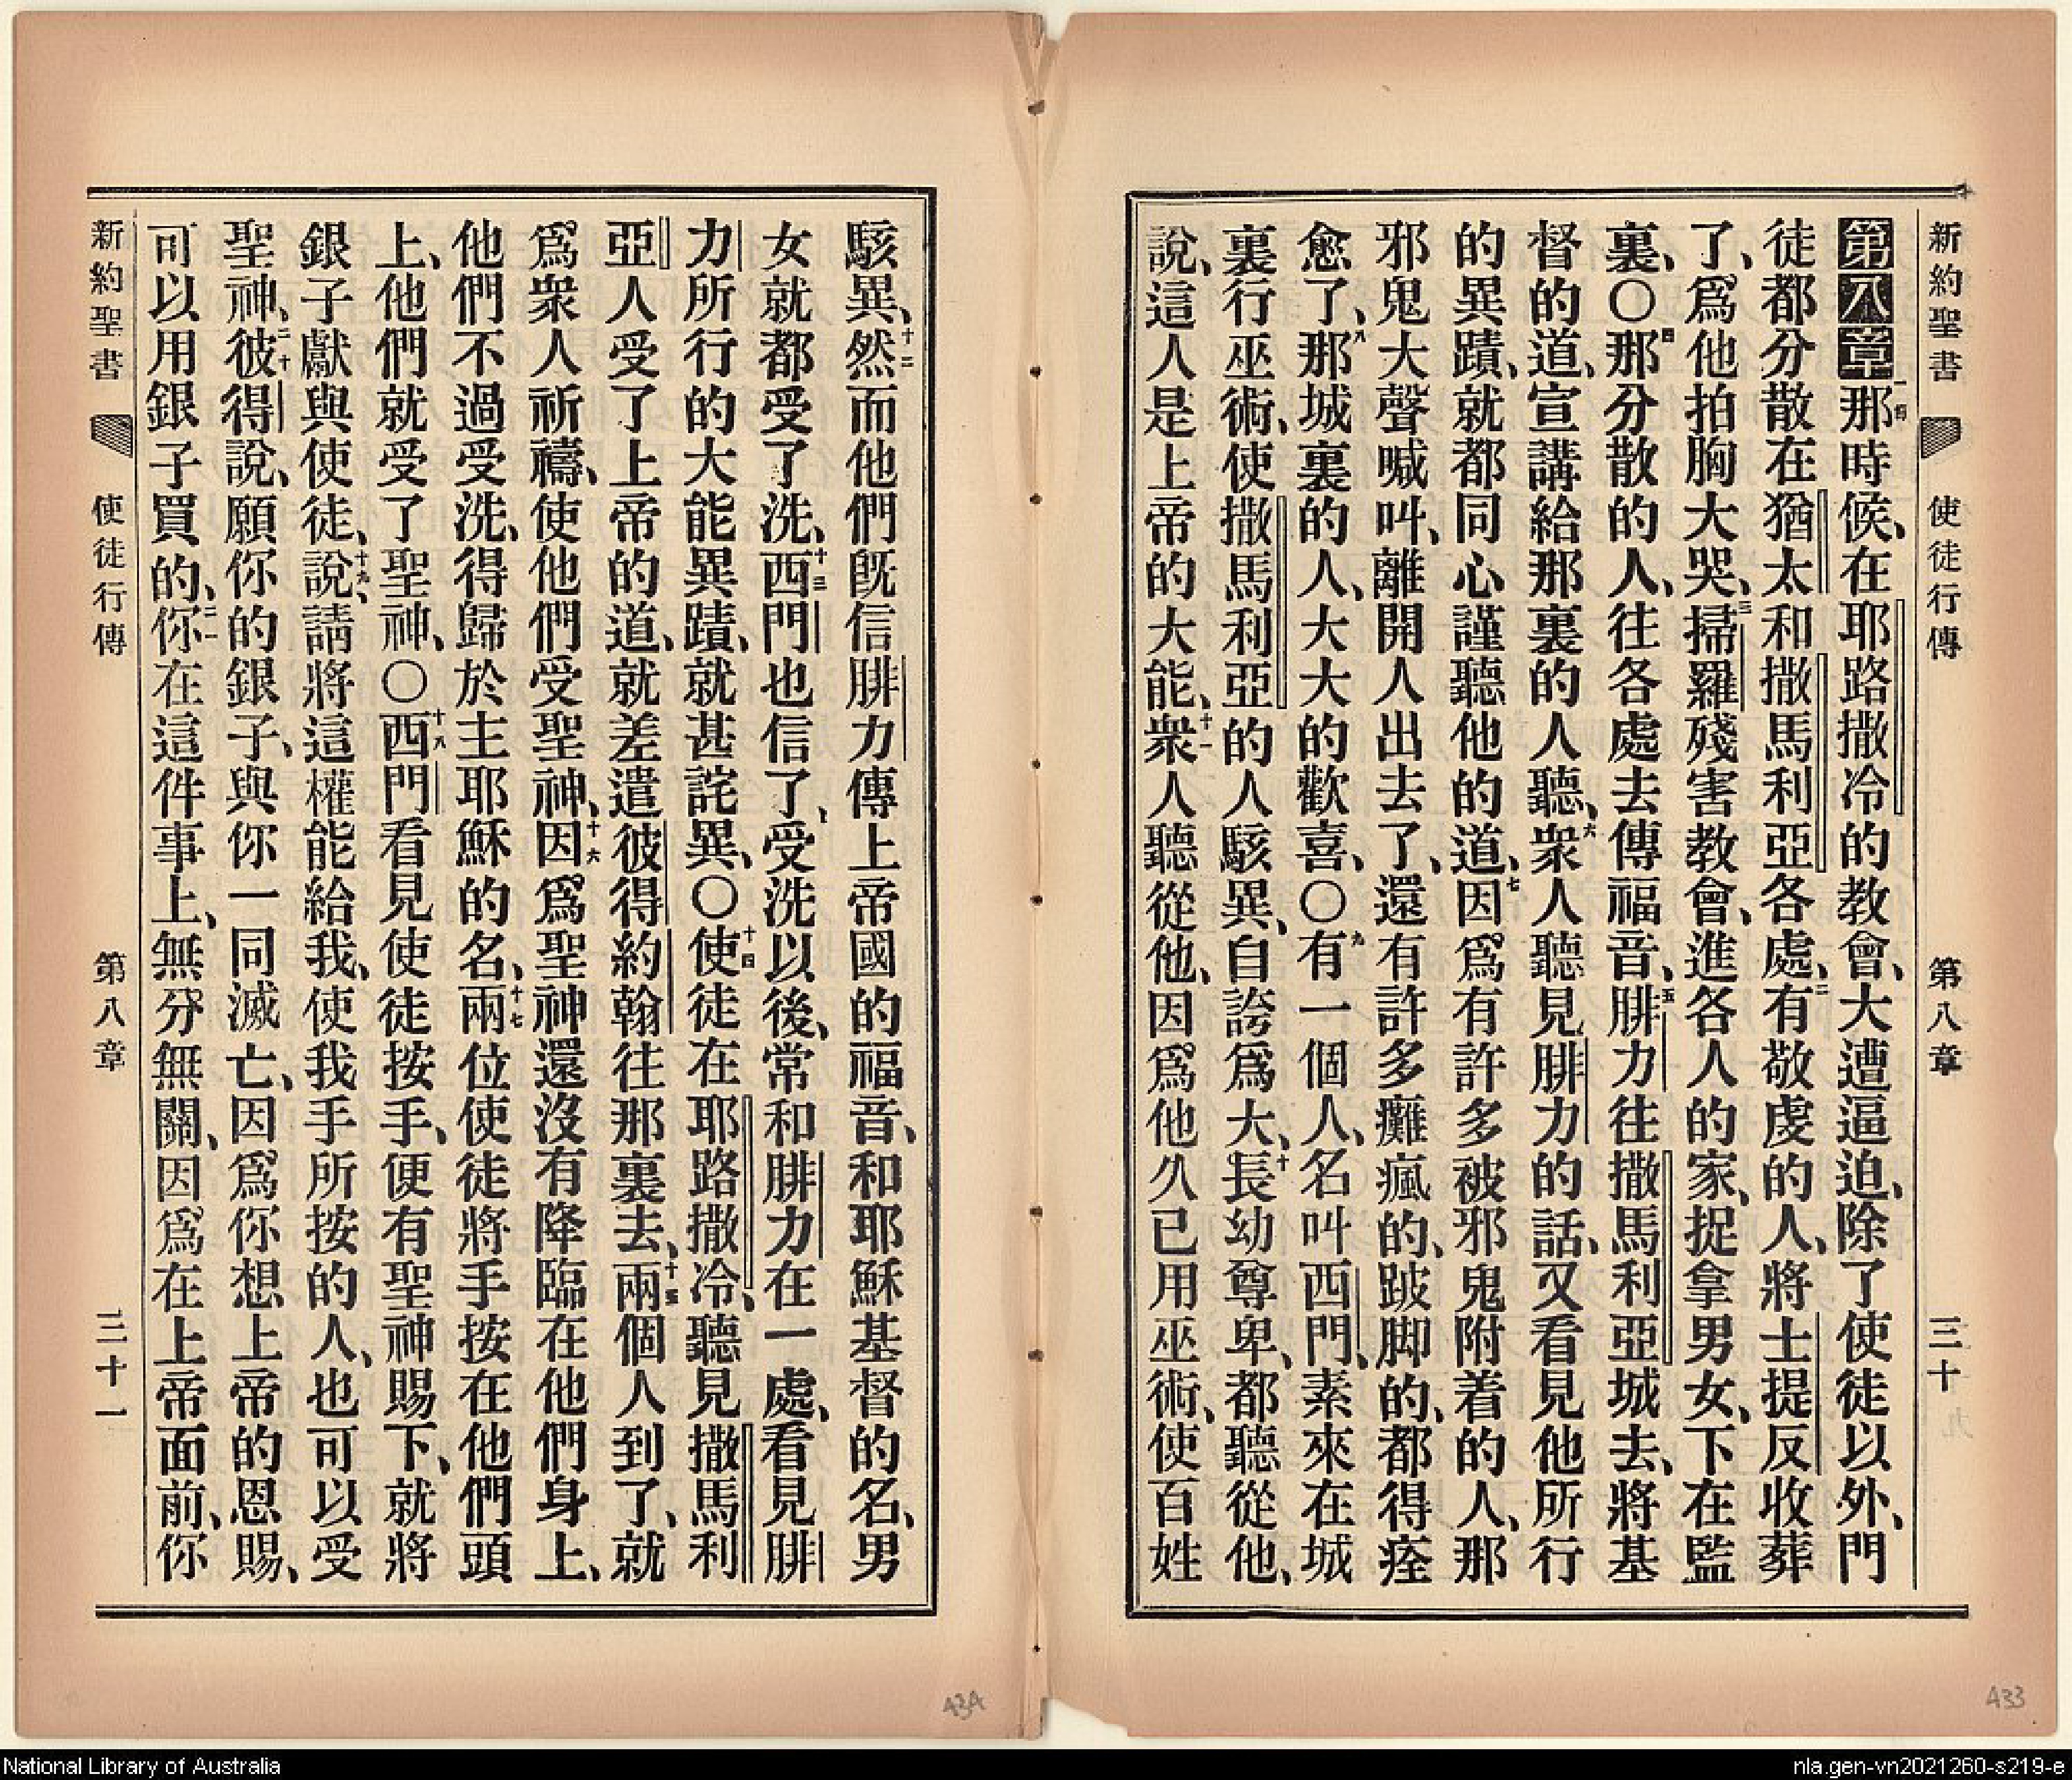 新約聖書 使徒行傳 第八章 三十
第八章一節那時候、在耶路撒冷的教會、大遭逼迫、除了使徒以外、門
徒都分散在猶太和撒馬利亞各處、二有敬虔的人、將士提反收葬
了、爲他拍胸大哭、三掃羅殘害教會、進各人的家、捉拿男女、下在監
裏、〇四那分散的人、往各處去傳福音、五腓力往撒馬利亞城去、將基
督的道、宣講給那裏的人聽、六衆人聽見腓力的話、又看見他所行
的異蹟、就都同心謹聽他的道、七因爲有許多被邪鬼附着的人、那
邪鬼大聲喊叫、離開人出去了、還有許多癱瘋的、跛脚的、都得痊
愈了、八那城裏的人、大大的歡喜、〇九有一個人、名叫西門、素來在城
裏行巫術、使撒馬利亞的人駭異、自誇爲大、十長幼尊卑、都聽從他、
說、這人是上帝的大能、十一衆人聽從他、因爲他久已用巫術、使百姓
駭異、十二然而他們旣信腓力傳上帝國的福音、和耶穌基督的名、男
女就都受了洗、十三西門也信了、受洗以後、常和腓力在一處、看見腓
力所行的大能異蹟、就甚詫異、〇十四使徒在耶路撒冷、聽見撒馬利
亞人受了上帝的道、就差遣彼得約翰往那裏去、十五兩個人到了、就
爲衆人祈禱、使他們受聖神、十六因爲聖神還沒有降臨在他們身上、
他們不過受洗、得歸於主耶穌的名、十七兩位使徒將手按在他們頭
上、他們就受了聖神、〇十八西門看見使徒按手、便有聖神賜下、就將
銀子獻與使徒、十九說、請將這權能給我、使我手所按的人、也可以受
聖神、二十彼得說、願你的銀子、與你一同滅亡、因爲你想上帝的恩賜、
可以用銀子買的、二一你在這件事上、無分無關、因爲在上帝面前、你
新約聖書 使徒行傳 第八章 三十一
434
433
National Library of Australia
nla.gen-vn2021260-s219-e